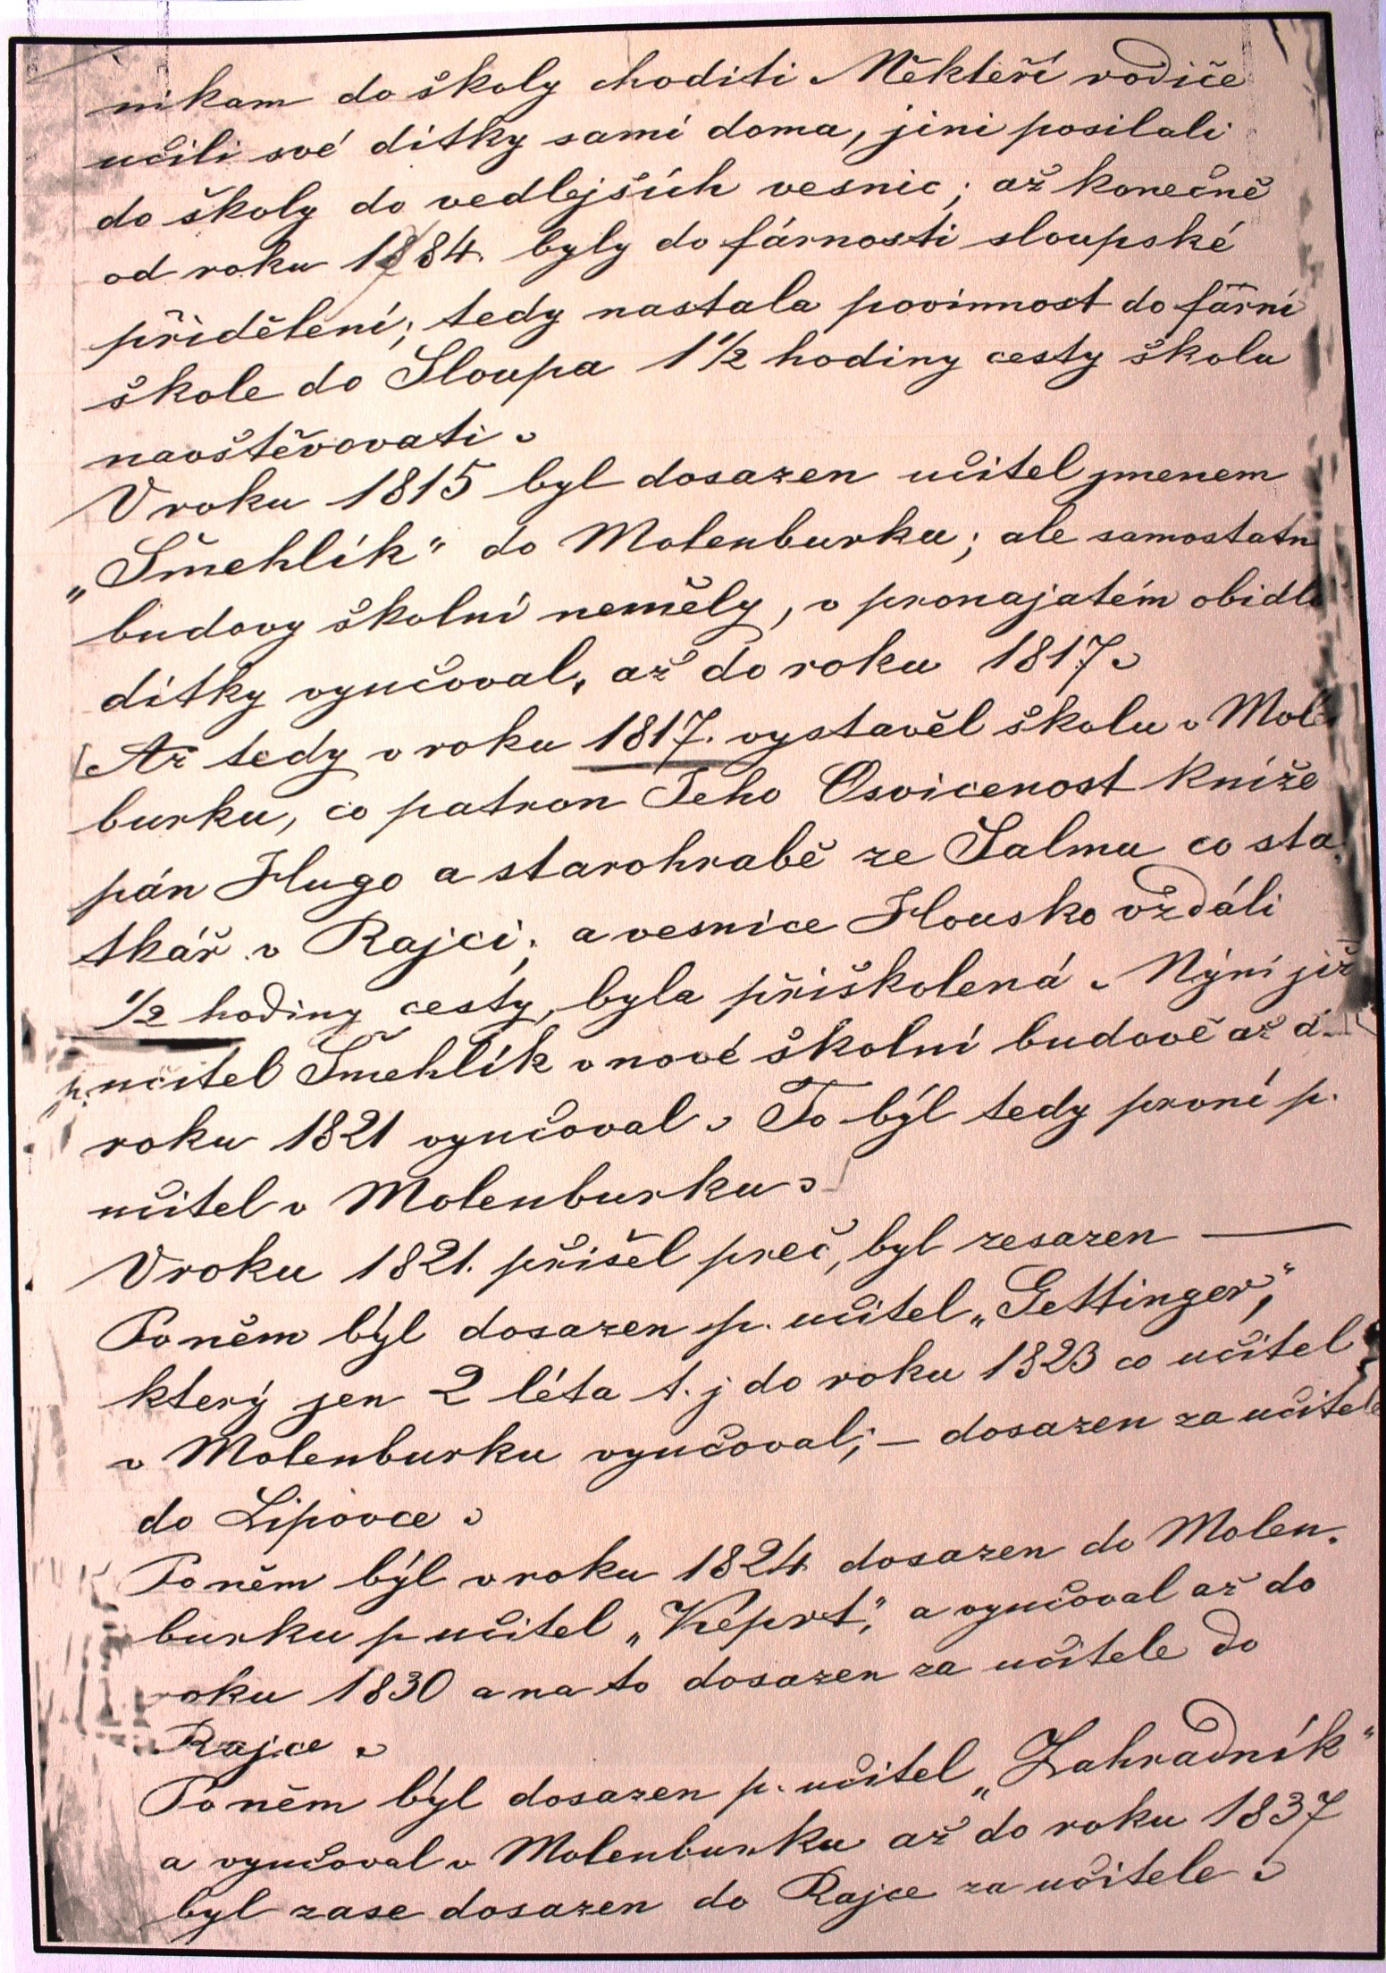 nikam do školy choditi. Někteří rodiče
učili své dítky sami doma, jini posilali
do školy do vedlejších vesnic; až konečně
od roku 1884. byly do fárnosti sloupské
přiděleni; tedy nastala povinnost do fární
škole do Sloupa 1 1/2 hodiny cesty školu
navštěvovati.
V roku 1815 byl dosazen učitel jmenem
„Šmehlík" do Molenburku; ale samostatn
budovy školní neměly, v pronajatém obidl
dítky vyučoval, až do roku 1817.
Až tedy v roku 1817. vystavěl školu v Mole
burku, co patron Jeho Osvicenost Kníže
pán Hugo a starohrabě ze Salmu co sta
tkář v Rajci; a vesnice Housko vzdáli
1/2 hodiny cesty, byla přiškolená. Nýní již
p. učitel Šmehlík v nové školní budově až d
roku 1821 vyučoval. To býl tedy první p.
učitel v Molenburku.
V roku 1821. přišel preč, byl zesazen —
Po něm býl dosazen p. učitel „Gettinger",
který jen 2 léta t. j do roku 1823 co učitel
v Molenburku vyučoval; — dosazen za učitele
do Lipovce.
Po něm býl v roku 1824 dosazen do Molen.
burku p učitel „Képrt", a vyučoval až do
roku 1830 a na to dosazen za učitele do
Rajce.
Po něm býl dosazen p. učitel „Zahradník"
a vyučoval v Molenburku až do roku 1837
byl zase dosazen do Rajce za učitele.